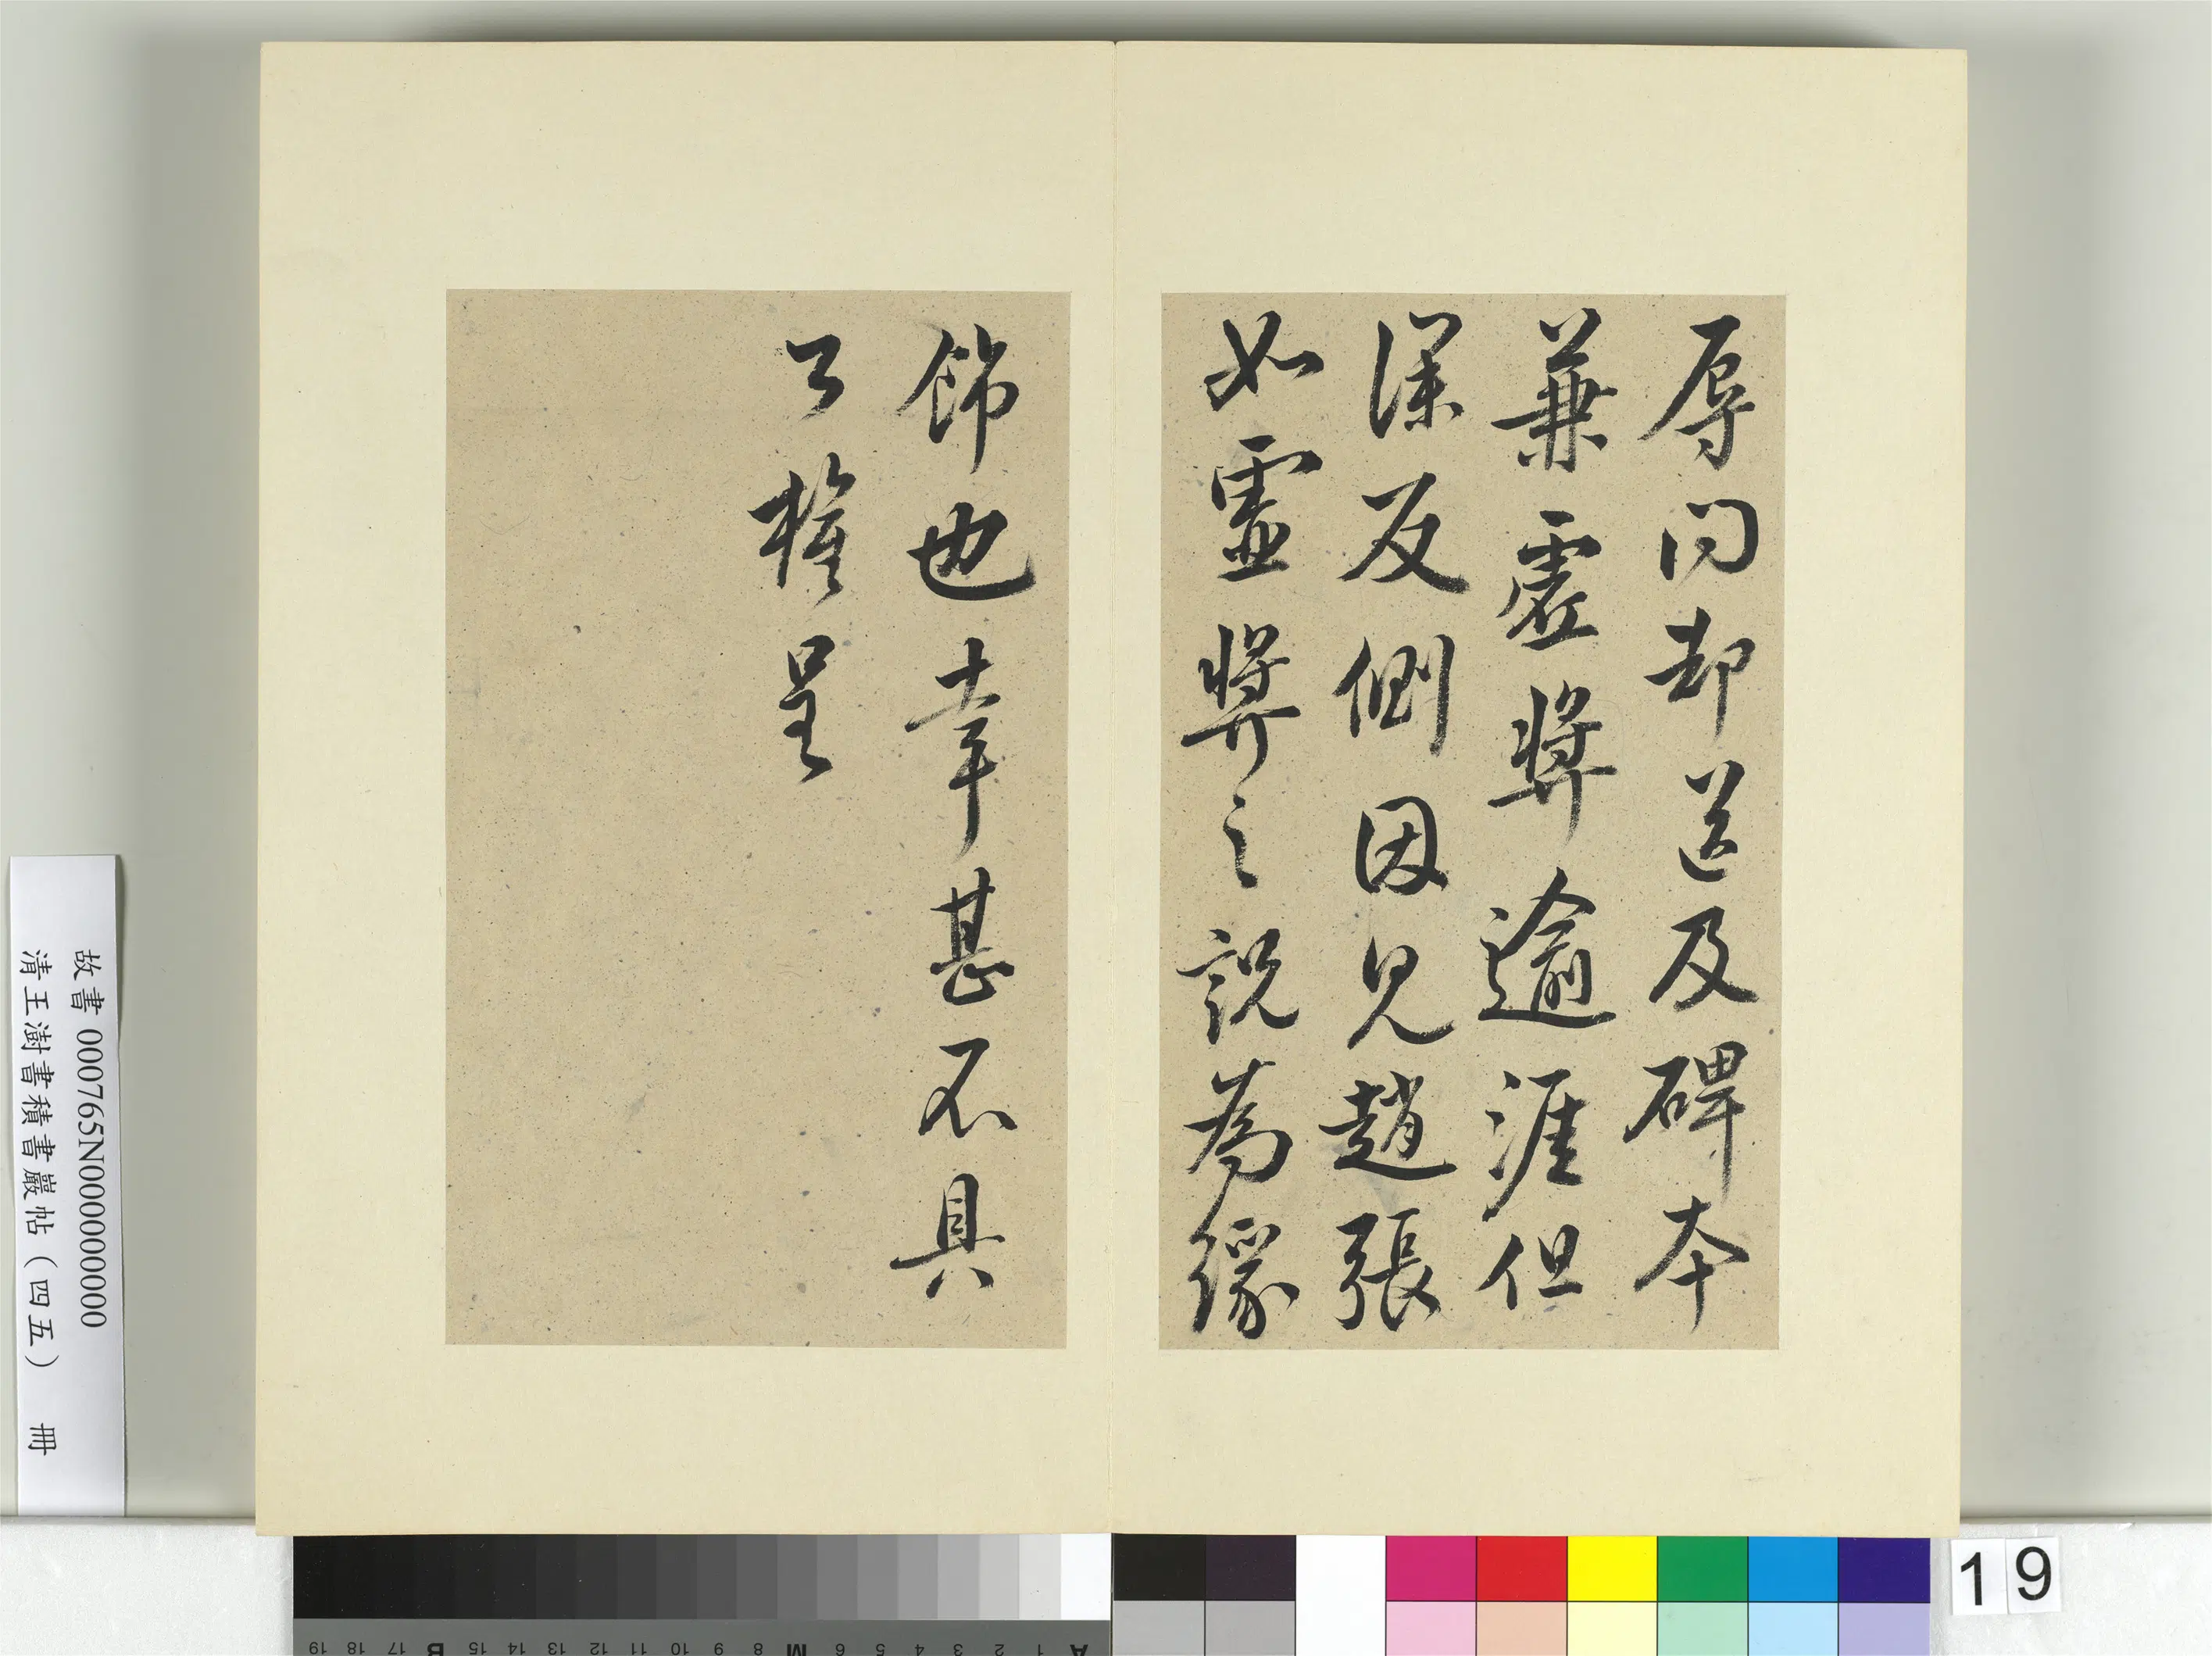 辱問却送及碑本
兼虛獎逾涯但
深反側因見趙張
如虛獎之說為緣
飾也幸甚不具
公權呈
故書 000765N000000000
清王澍書積書巖帖（四五） 冊
19
A 1 2 3 4 5 6 M 8 9 10 11 12 13 14 15 B 17 18 19